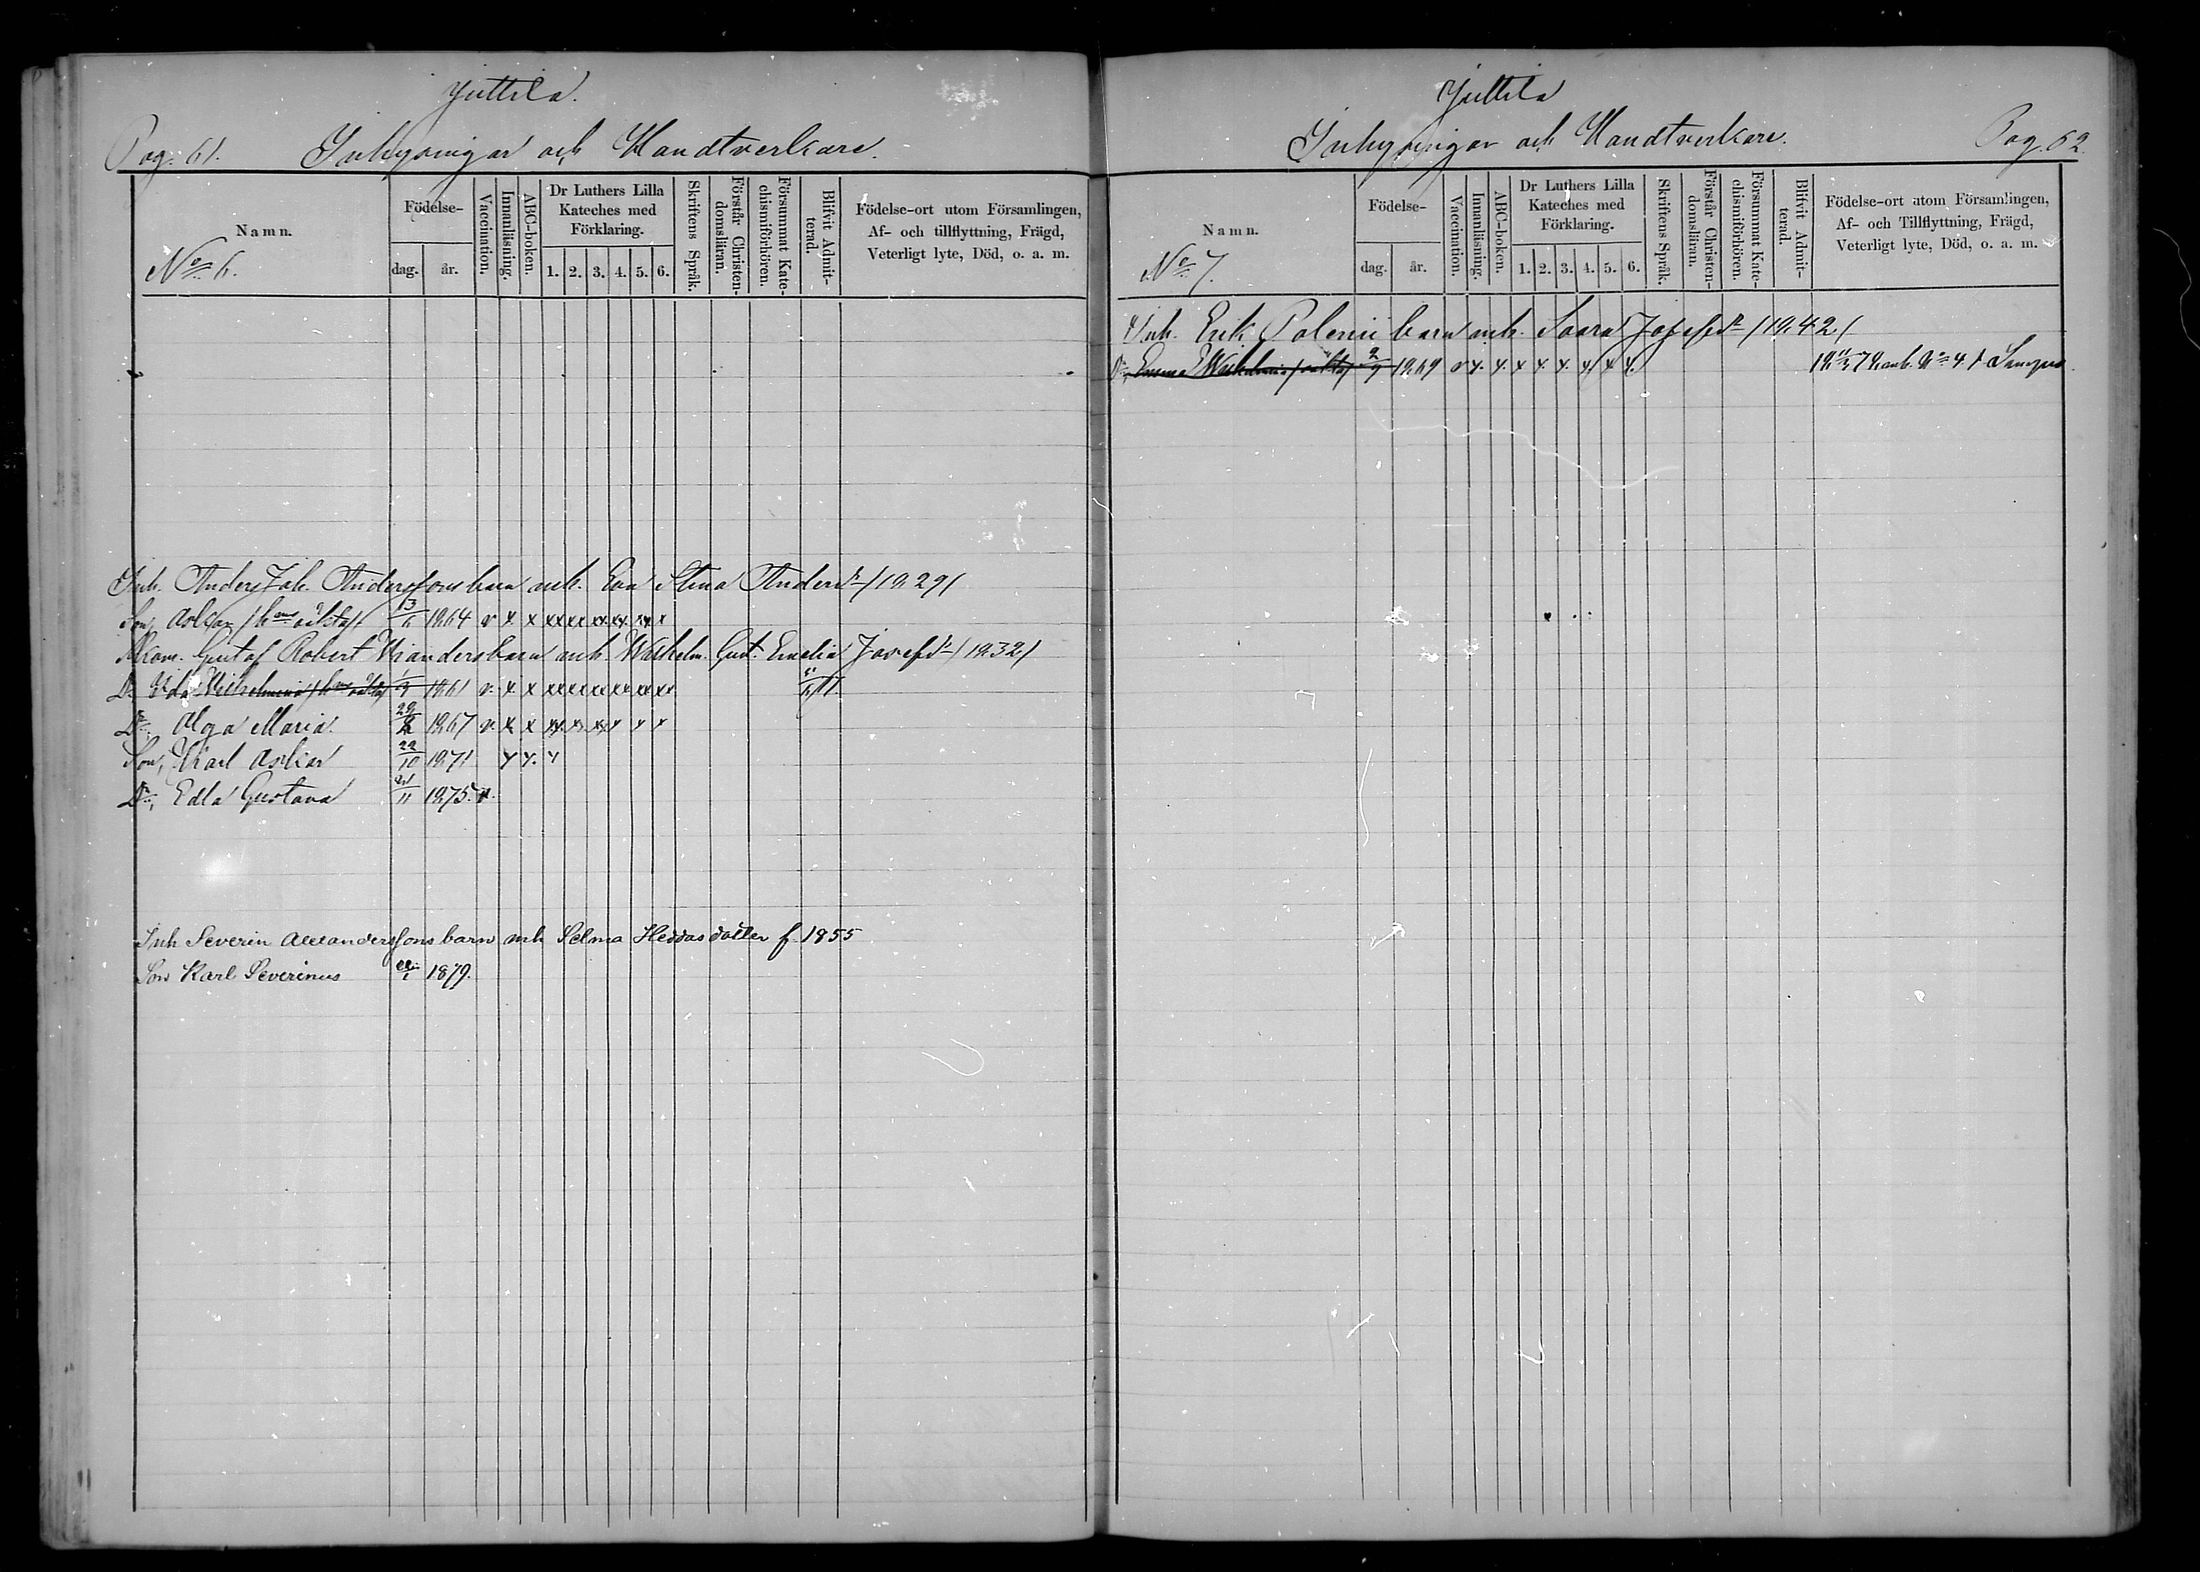 Juttila.
Pag. 61. Inhysingar och Handtverkare.
Namn.
No 6.
Födelse-
dag. år.
Vaccination.
Innanläsning.
ABC-boken.
Dr Luthers Lilla Kateches med Förklaring.
1. 2. 3. 4. 5. 6.
Skriftens Språk.
Förstår Christen-domsläran.
Försummat Kate-chismiförhören.
Blifvit Admit-terad.
Födelse-ort utom Församlingen,
Af- och tillflyttning, Frägd,
Veterligt lyte, Död, o. a. m.
Inh. Anders Joh. Anderssons barn mh. Eva Stina Andersdr /1829/
Son, Oskar 13/6 1864 v x x xx xx xx xx xx x
Gustaf Robert Wianders barn mh. Wilhelm. Gust. Emelia Josefsdr /1832/
Dr Ida Wilhelmina 1/9 1861 v. x x xx xx xx xx xx xx
Dr, Olga Maria. 1867 v. x x x x
Son, Karl Oskar 22/10 1871 x x. x
Dr, Edla Gustava 21/11 1875. v.
Inh Severin Alexanderssons barn mh Selma Heddasdotter f. 1855
Son Karl Severinus 1879.
Juttila
Inhysingar och Handtverkare. Pag. 62
Namn.
No 7.
Födelse-
dag. år.
Vaccination.
Innanläsning.
ABC-boken.
Dr Luthers Lilla Kateches med Förklaring.
1. 2. 3. 4. 5. 6.
Skriftens Språk.
Förstår Christen-domsläran.
Försummat Kate-chismiförhören.
Blifvit Admit-terad.
Födelse-ort utom Församlingen,
Af- och Tillflyttning, Frägd,
Veterligt lyte, Död, o. a. m.
Inh. Erik Polenii barn mh. Saara Josefsdr /1842/
Dr, Emma Wilhelmina 2/9 1869 v x. x. x x. x. x x x.